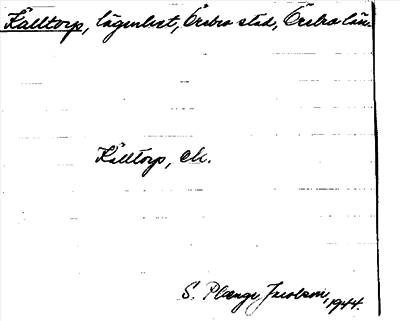 Källtorp, lägenhet, Örebro stad, Örebro län.
Källtorp, ek.
S. Plænge Jacobson, 1944.